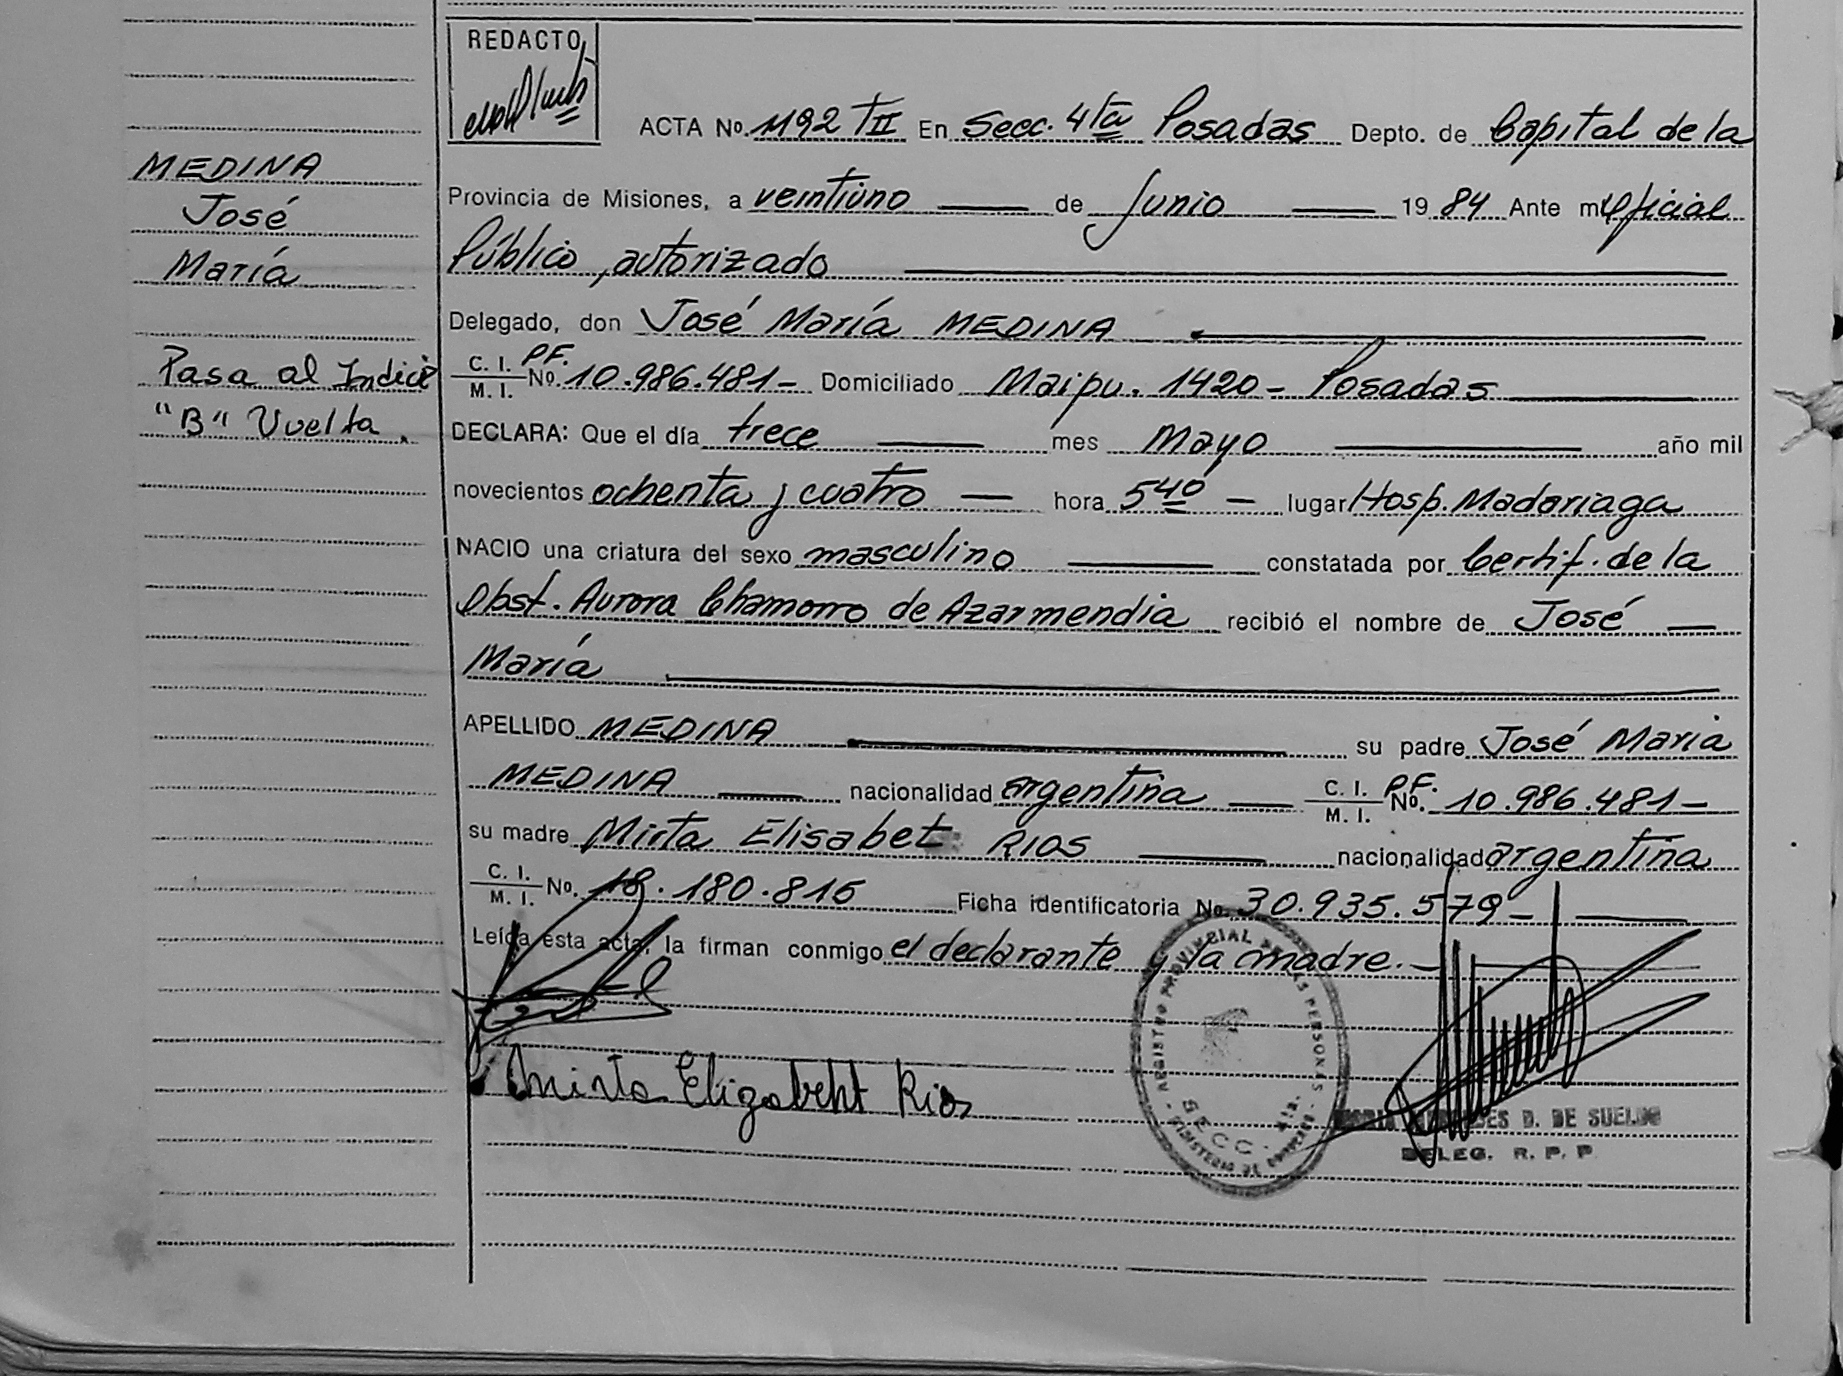 REDACTO
ACTA No. 1192 TII En Secc. 4ta Posadas Depto. de Capital de la
MEDINA
José
María
Provincia de Misiones, a veintiuno de Junio 1984 Ante mi Oficial
Público, autorizado
Delegado, don José María MEDINA
Pasa al Indice
"B" Vuelta.
C. I. M. I. P.F. No. 10.986.481- Domiciliado Maipu. 1420- Posadas
DECLARA: Que el día trece mes Mayo año mil
novecientos ochenta y cuatro hora 5 40 - lugar Hosp. Madariaga
NACIO una criatura del sexo masculino constatada por Certif. de la
Obst. Aurora Chamorro de Azarmendia recibió el nombre de José
María
APELLIDO MEDINA su padre José Maria
MEDINA nacionalidad argentina C. I. M. I. P.F. No. 10.986.481-
su madre Mirta Elisabet RIOS nacionalidad argentina
C. I. M. I. No. 18.180.816 Ficha identificatoria No. 30.935.579-
Leída esta acta, la firman conmigo el declarante y la madre.-
Mirta Elizabeht Rios
REGISTRO PROVINCIAL DE LAS PERSONAS
SECC. 4ta.
MINISTERIO DE GOBIERNO
D. DE SUELDO
DELEG. R. P. P